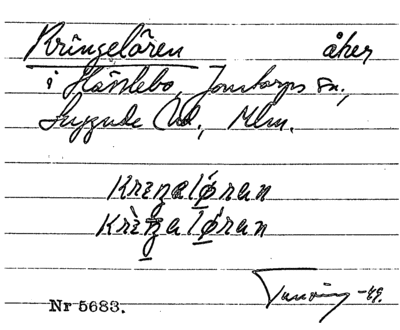 Kringelåren åker
i Hässlebo, Jonstorps sn.,
Luggude hd., Mlm.
Krɪŋalø̀ran
Krɪ̀ŋalø̀ran
-49.
Nr 5683.